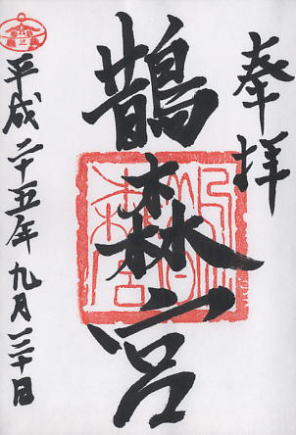 奉拝
鵲森宮
平成二十五年九月三十日